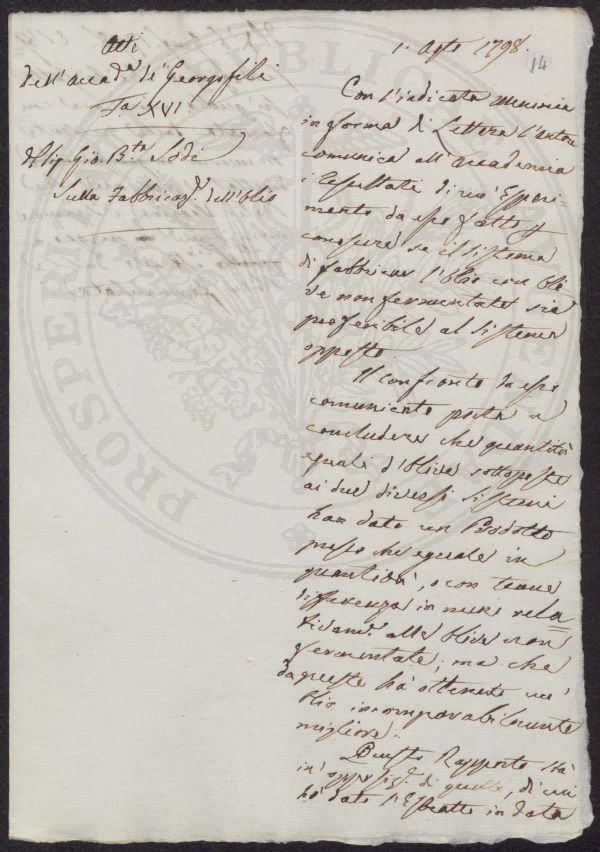 Atti
dell'Accad.a de' Georgofili
Fa. XVI
del Sig. Gio. B.ta Sodi
Sulla Fabbricaz.e dell'Olio
1. Agto 1798.
14
Con l'indicata memoria
in forma di Lettera l'autore
comunica all'accademia
i resultati di un' Esperi-
mento da esso fatto p
conoscere se il sistema
di fabbricar l'Olio con Oli-
ve non fermentate sia
preferibile al sistema
opposto.
Il confronto da esso
comunicato porta a
concludere che quantità
eguali d'Olive sottoposte
ai due diversi sistemi
han dato un Prodotto
presso che eguale in
quantità, o con tenue
differenza in meno rela=
tivam.e alle Olive non
fermentate; ma che
da queste ha ottenuto un'
Olio incomparabilmente
migliore.
Questo Rapporto sta
in' opposiz.e di quello, di cui
ho dato l'Estratto in data
PROSPER
PUBLIC